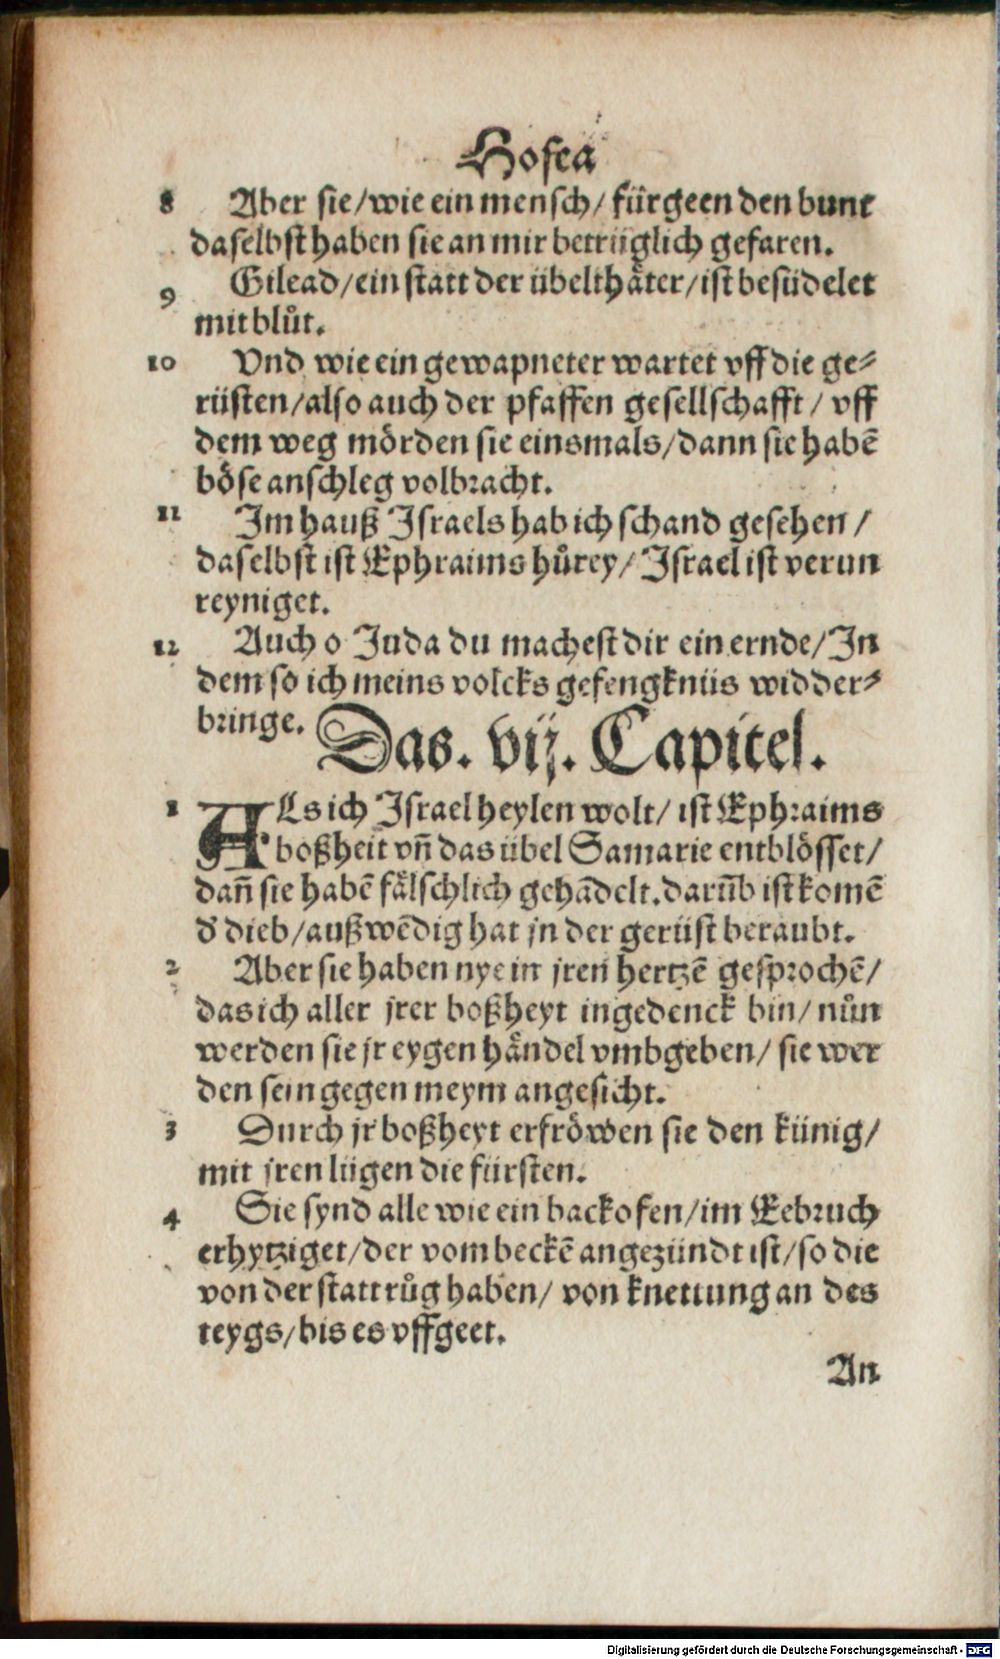 Hosea
8 Aber sie/wie ein mensch/fürgeen den bunt
daselbst haben sie an mir betrüglich gefaren.
9 Gilead/ein statt der übelthäter/ist besüdelet
mit blůt.
10 Vnd wie ein gewapneter wartet vff die ge⸗
rüsten/also auch der pfaffen gesellschafft/vff
dem weg mörden sie einsmals/dann sie habē
böse anschleg volbracht.
11 Im hauß Israels hab ich schand gesehen/
daselbst ist Ephraims hůrey/Israel ist verun
reyniget.
12 Auch o Juda du machest dir ein ernde/In
dem so ich meins volcks gefengkniis widder⸗
bringe.
Das. vij. Capitel.
1 ALs ich Israel heylen wolt/ist Ephraims
boßheit vñ das übel Samarie entblösset/
dañ sie habē fälschlich gehādelt.darūb ist komē
d' dieb/außwēdig hat jn der gerüst beraubt.
2 Aber sie haben nye in jren hertzē gesprochē/
das ich aller jrer boßheyt ingedenck bin/nůn
werden sie jr eygen händel vmbgeben/sie wer
den sein gegen meym angesicht.
3 Durch jr boßheyt erfröwen sie den künig/
mit jren lügen die fürsten.
4 Sie synd alle wie ein backofen/im Eebruch
erhytziget/der vom beckē angezündt ist/so die
von der statt růg haben/von knettung an des
teygs/bis es vffgeet.
An
Digitalisierung gefördert durch die Deutsche Forschungsgemeinschaft - DFG